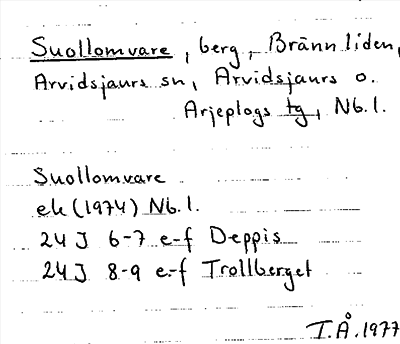 Suollomvare, berg, Brännliden,
Arvidsjaurs sn, Arvidsjaurs o.
Arjeplogs tg, Nb. l.
Suollomvare
ek (1974) Nb. l.
24 J 6-7 e-f Deppis
24 J 8-9 e-f Trollberget
T.Å. 1977